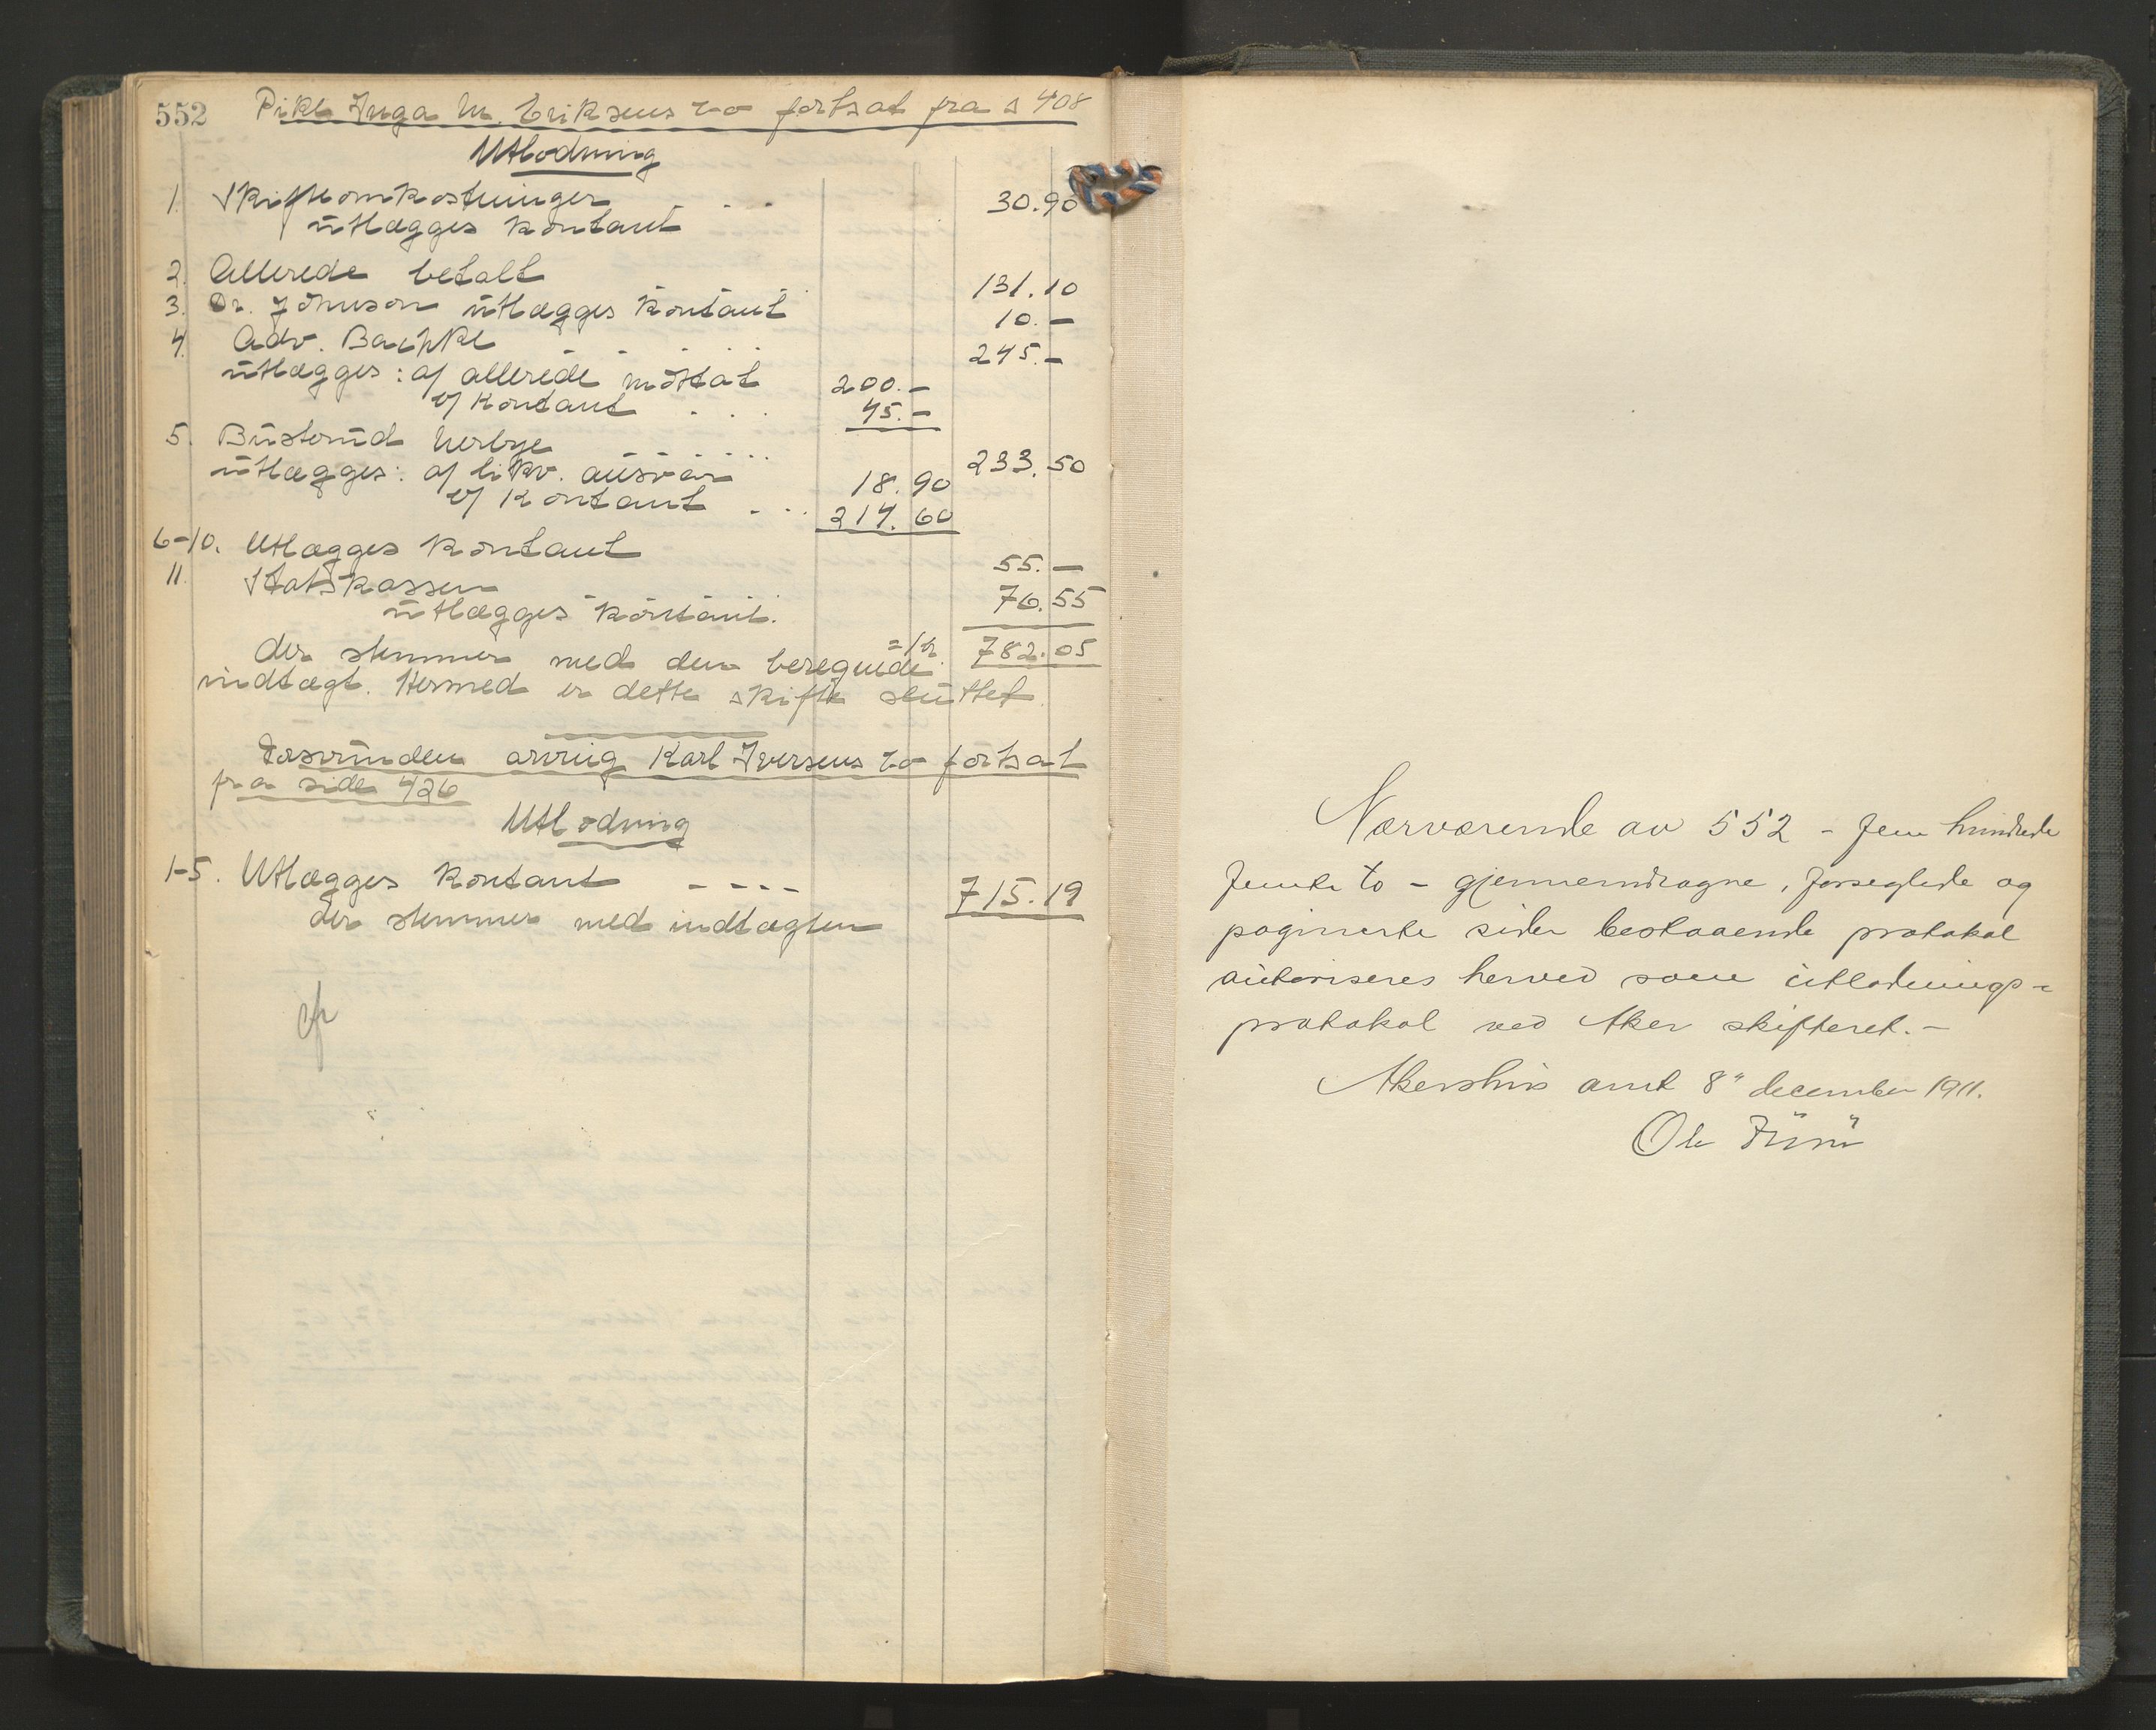 552 Pike Inga M. Eriksens bo fortsat fra s 408
Utlodning
1. Skifteomkostninger . . . 30.90
utlægges kontant
2. Allerede betalt 131.10
3. Dr. Johnson utlægges kontant 10.-
4. Adv. Bachke . . . . 245.-
utlægges: af allerede mottat 200.-
v/ kontant . . . 45.-
5. Büsterud Nerbye . . . . . 233.50
utlægges: af likv. ansvar 18.90
v/ kontant . . . 214.60
6-10. Utlægges kontant 55.-
11. Statskassen 76.55
utlægges kontant.
= kr. 782.05
der stemmer med den beregnede
indtægt. Hermed er dette skifte sluttet.
arving Karl Iversens bo fortsat
fra side 426
Utlodning
1-5. Utlægges kontant - - - - 715.19
der stemmer med indtægten
Nærværende av 552 - fem hundrede
femti to - gjennemdragne, forseglede og
paginerte sider bestaaende protokol
autoriseres herved som utlodnings-
protokol ved Aker skifteret. -
Akershus amt 8" december 1911.
Ole